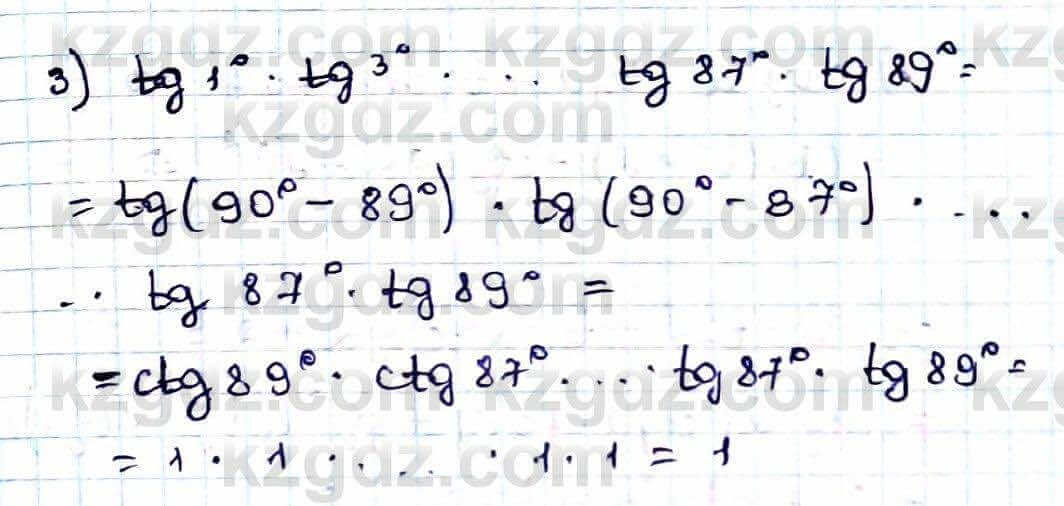 3) tg 1° · tg 3° · . . tg 87° · tg 89° =
= tg(90° - 89°) · tg(90° - 87°) · . . .
. . tg 87° · tg 89° =
= ctg 89° · ctg 87° · ... · tg 87° · tg 89° =
= 1 · 1 · . .. · 1 · 1 = 1
kzgdz.com